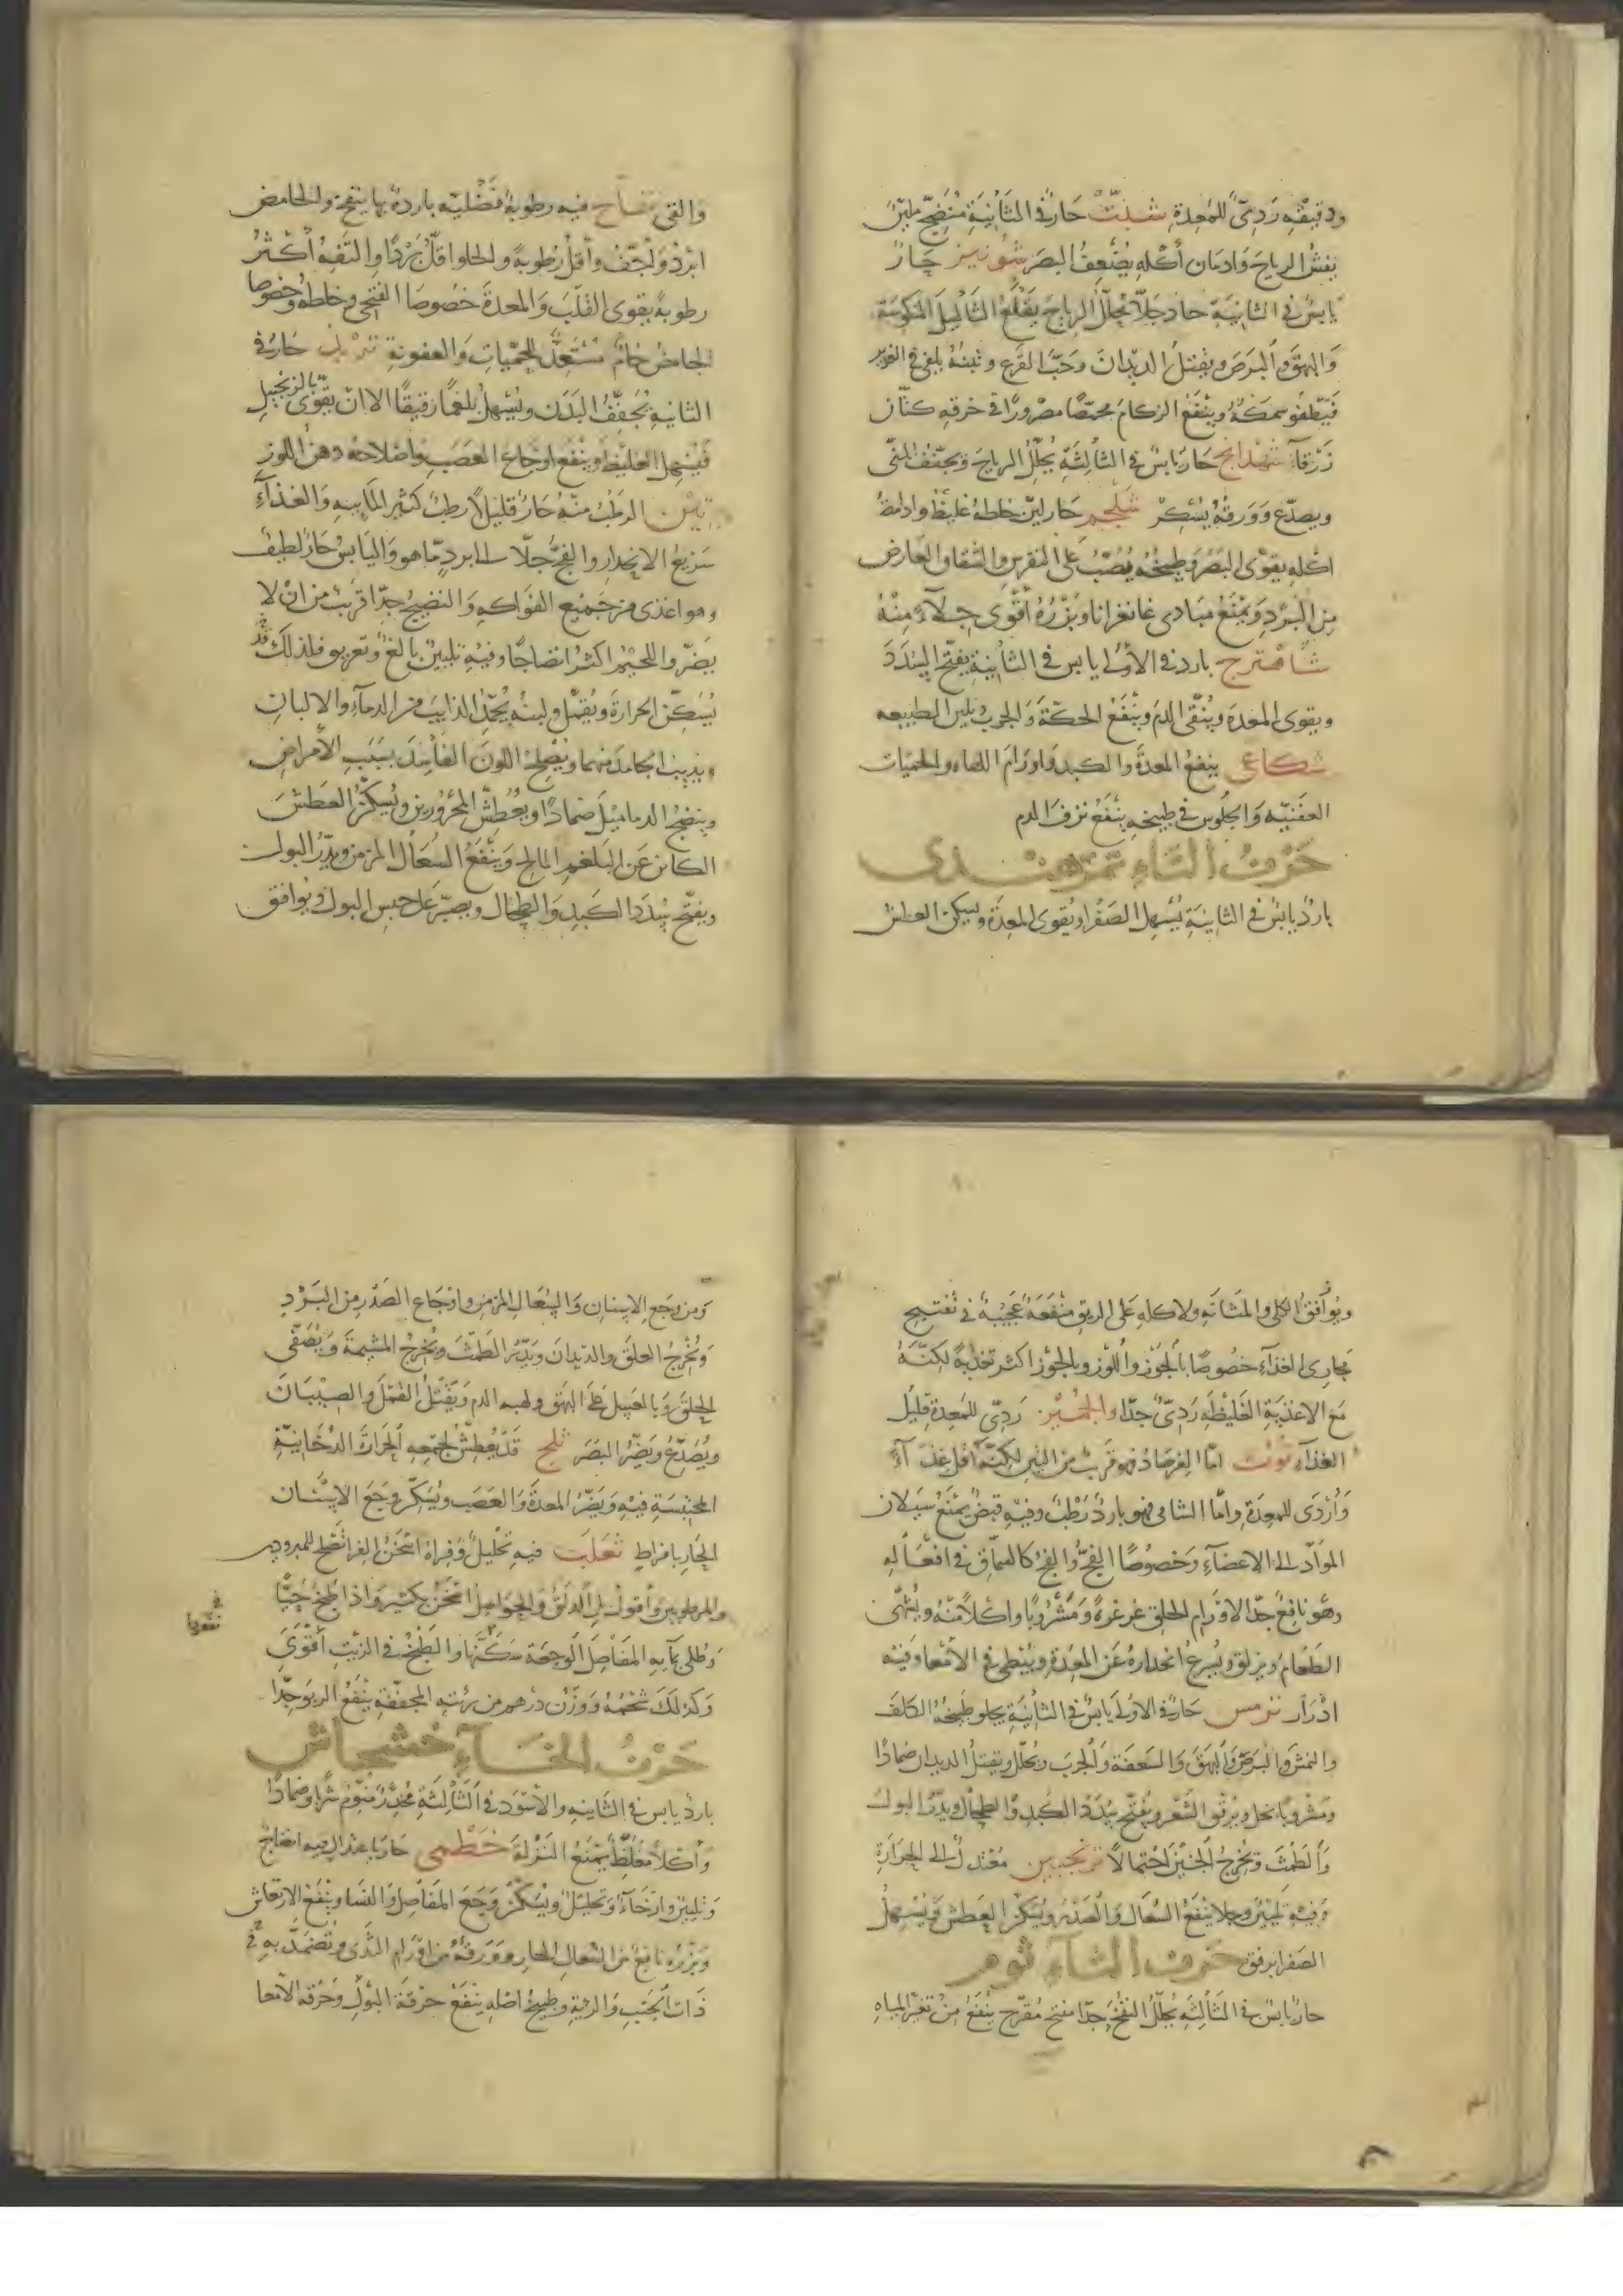 ودقيقه رَدِىّ للمَعِدةِ شبث حَارٌ فى الثَانِيَةِ مُنضِجٌ مليّنٌ
يفش الرياحَ وَادمَان أكله يُضْعِفُ البصَرَ شونيز حَارٌ
يابسٌ فى الثانيَةِ حاد جَلّاءٌ يُحلّلُ الرياحَ يَقْلَعُ الثآليلَ المنكوسَة
وَالبهَقَ وَالبَرَصَ ويقتلُ الديدَانَ وَحَبَّ القَرع وَ يلقى فى الغدير
فيَطفُو سمَكهُ وَينفَعُ الزكامَ محمّصًا مصْرورًا فى خرقهِ كتّان
زَرْقَاء شهدانج حَارٌ يَابسٌ فى الثالثة يُحلّلُ الرياحَ وَيجفّف المنّى
ويصدّع وَوَرقهُ يُسْكِرْ شلجم حَار ليّن خلطهُ غليظٌ وادامةُ
اكلهِ يقوّى البَصَرَ وَطبيخُهُ يُصَبُّ عَلى النقرسِ والشقاق العَارض
مِنَ البَرْدِ وَيمْنَعُ مبَادى غانغرانا وَبَزْرُهُ أقْوَى جلآءً مِنْهُ
شاهترج بارد فى الأولى يابس فى الثانِيَةِ يفتّح السُدَدَ
ويقوى المعِدَةَ وَيُنَقّى الدَمَ وَيَنْفَعُ الحكّةَ وَالجرَبَ يُلين الطبيعه
شكاعى ينفعُ المعدَةَ والكبدَ وَاورَامَ اللهاه والحمّيات
العَفَنيّه وَالجلُوس فى طبيخهِ يَنْفَعُ نزفَ الدم
حَرْفُ التّاءِ تمرهندى
باردٌ يابسٌ فى الثانِيَةِ يُسْهِلُ الصَفْرا ويُقوى المعِدَةَ ويسكن العطش
والقئ تفاح فيه رطوبةٌ فَضْليّه باردةٌ بها ينفخ والحامض
ابْرَدُ وَأجَفُّ وأقلُّ رُطوبةً والحلوا قلُّ بَرْدًا والتَّفِهُ أكْثَرُ
رطوبةً يقوى القلْبَ وَالمعدةَ خصُوصَا الفتحى وخلطهُ وخصُوصًا
الحامضُ خامٌ مُسْتعِدٌّ للحمّياتِ وَالعفونةِ تربد حَارٌ فى
الثانيةِ يُجفّفُ البَدَن ويُسْهلُ بلغمًا رَقيقًا الا ان يقوّى بالزنجبيل
فيُسْهِل الغليظَ وَينْفَعُ اوجَاعَ العَصَبِ وَاصْلاحهُ دهن اللوز
تين الرطبُ منْهُ حَارٌ قليلًا رطبٌ كثير المائيهِ وَالغذآءِ
سَريعُ الانحِدارِ والفجُّ جلّاءٌ الى البردِ مّا هو وَاليابسُ حَارٌ لطيفٌ
وهو اغذى من جَميع الفواكه وَالنضيج جدّا قريبٌ من انْ لا
يضرّ واللحيْمُ اكثرُ انضاجًا وفيْهِ تليينٌ بالغٌ وَتعريق فلذلكَ قد
يُسَكّنُ الحرارةَ وَيُقمّلُ ولبنُهُ يُجَمّدُ الذايبَ من الدمآءِ والالبانِ
ويذيبُ الجامدَ منهما ويُصْلِحُ اللونَ الفَاسِدَ بسَبَبِ الأمراضِ
وينضجُ الدماميْلَ ضمادًا ويُعَطِشُ المحرُورين ويُسَكّنُ العَطَشَ
الكائن عَن البَلغم المالح وَينْفَعُ السُعَالَ المزمن ويدِرُّ البولَ
ويفتّح سُدَدَ الكَبِدِ وَالطِحَالِ ويصبّر عَلى حبس البول وَيوافق
ويُوَافقُ الكلى والمَثانَهِ ولاكلهِ عَلى الريق منْفَعَةٌ عَجيْبَةٌ فى تفتيحِ
مجارى الغذآءِ خصُوصًا بالجَوْزِ وَاللّوز وبالجوْز اكثر تغذيةً لكنّهُ
مَع الاغذيَةِ الغَليظةِ رَدِىٌّ جدًّا والجمّيز رَدِىٌّ للمَعِدةِ قليل
الغذآءِ توت امّا الفرصَادُ فهو قريبٌ من التين لكنّهُ أقل غذآءً
وَأرْدَى للمعِدَةِ وَامّا الشامى فهو باردٌ رَطْبٌ وفيْهِ قبضٌ يمْنَعُ سَيَلان
الموَادّ الى الاعضآءِ وَخصُوصًا الفجُّ وَالفجُّ كالسماق فى افعَالهِ
وهُو نافِعٌ جدّا لاوْرَام الحلق غرغرةً وَمَشْرُوبًا واكلًا منْهُ ويُشَهّى
الطَعَام وَيزلق ويُسرعُ انحدارهُ عَن المعِدَةِ ويُبطى فى الأمعا وفيْهِ
ادْرَار ترمس حَارٌ فى الاولى يَابسٌ فى الثانِيَةِ يجلو طبيخُهُ الكلفَ
والنمشَ وَالبرَصَ وَالبَهَقَ وَالسعفةَ وَالجربَ ويُحلّل ويقتلُ الديدان ضمادًا
ومشروبًا بخل ويُرقّقُ الشَعْرَ ويُفتّح سُدَدَ الكَبِدِ وَالطِحَالِ ويدِرُّ البولَ
وَالطَمْثَ وَيُخْرِجُ الجنيْنَ احْتِمالًا ترنجبين مُعْتدِلٌ الى الحَرَارَةِ
وَفيْهِ تَلييْنٌ وجلا ينْفَعُ السُعَالَ وَالصَدْرَ وَيُسَكّنُ العَطَش وَيُسْهلُ
الصَفرا برفق حَرفُ الثّآءِ ثُوم
حارٌ يابسٌ فى الثَالثةِ يُحَلّلُ النفْخَ جدًّا مفتح مُقَرّحٌ ينْفَعُ مِنْ تغيّر المياهِ
وَمن وَجَعِ الاسنانِ وَالسُّعَالِ المزمن وَاوْجَاع الصَدْر مِنَ البَرْدِ
وَيُخْرِجُ العلقَ والديدَانَ وَيُدِرُّ الطمثَ وَيُخْرِجُ المشيمةَ وَيُصَفّى
الحلقَ وَبالعَسَل عَلى البَهَق وَلهب الدم وَيَقْتلُ القَملَ والصِيْبَانَ
ويُصَدّعُ وَيَضُرُّ البَصَرَ ثلج قَدْ يُعَطِشُ لجمْعِهِ الحرَارةَ الدُخَانيّة
المحتبسَةِ فيْهِ وَيَضُرُّ المعدَةَ وَالعَصَبَ ويُسَكّنُ وَجَعَ الاسْنَان
الحارّ بافراطٍ ثعلب فيهِ تحليلٌ وَفِراهُ اسْخَنُ الفرا تصْلح للمبرودين
والمرطوبين وأقول بل الدلق وَالحواصل اسْخَنُ بكثير وَاذا طُبخَ حَيًّا
وَطُلى بمآيهِ المَفاصِلَ الوَجعَة سَكَّنَها والطبخُ فى الزيْتِ أقْوَى
فى
نفعها
وَكذلكَ شَحْمُهُ وَوَزْن درْهم من رئتهِ المجفّفةِ ينْفَعُ الربوَ جِدًّا
حَرْفُ الخَآءِ خشخاش
باردٌ يابس فى الثانيه والأسْوَد فى الثالثةِ مُخدِّرٌ مُنَوّم شربا وضمادًا
وأكلًا مغلظ يمْنَعُ النَزْلةَ خطْمى حَار باعتدال فيه انضاج
وَتليينٌ وارْخَآءٌ وَتحليْلٌ ويُسَكّنُ وَجَعَ المَفَاصِلِ وَالنسا وَيَنْفَعُ الارتعاش
وَبَزْرُهُ نافعٌ من السُعالِ الحار وَوَرقهُ من اوْرَامِ الثدْى وَتُضمَدُ به فى
ذَات الجَنْبِ وَالرئةِ وطبيخُ اصْلهِ ينْفَعُ حرْقةَ البَوْلِ وَحُرْقةَ الأمعا